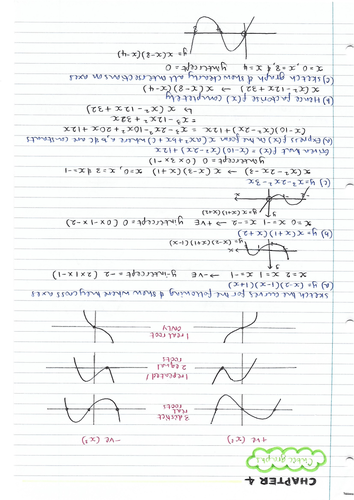 CHAPTER 4
Cubic graphs
+ve (x³) -ve (x³)
3 distinct
real
roots
1 repeated /
2 equal
roots
1 real root
only
Sketch the curves for the following & show where they cross axes
(a) y=(x-2)(1-x)(1+x)
x=2 x=1 x=-1 → -ve y-intercept = -2 (-2x1x1)
y=(x-2)(1-x)(1+x)
(b) y=x(x+1)(x+2)
x=0 x=-1 x=-2 → +ve y intercept = 0 (0x1x-2)
y=x(x+1)(x+2)
(c) y=x³-2x²-3x
x(x²-2x-3) → x(x-3)(x+1) x=0, x=3 & x=-1
y intercept = 0 (0x3x-1)
Given that f(x) = (x-10)(x²-2x)+12x
(a) Express f(x) in the form x(ax²+bx+c) where a,b & c are constants
(x-10)(x²-2x)+12x = x³-2x²-10x²+20x+12x
= x³-12x²+32x
= x(x²-12x+32)
(b) Hence factorise f(x) completely
x(x²-12x+32) → x(x-8)(x-4)
(c) Sketch graph & show clearly all intersections on axes
x=0, x=8 & x=4 y intercept 0
y=x(x-8)(x-4)